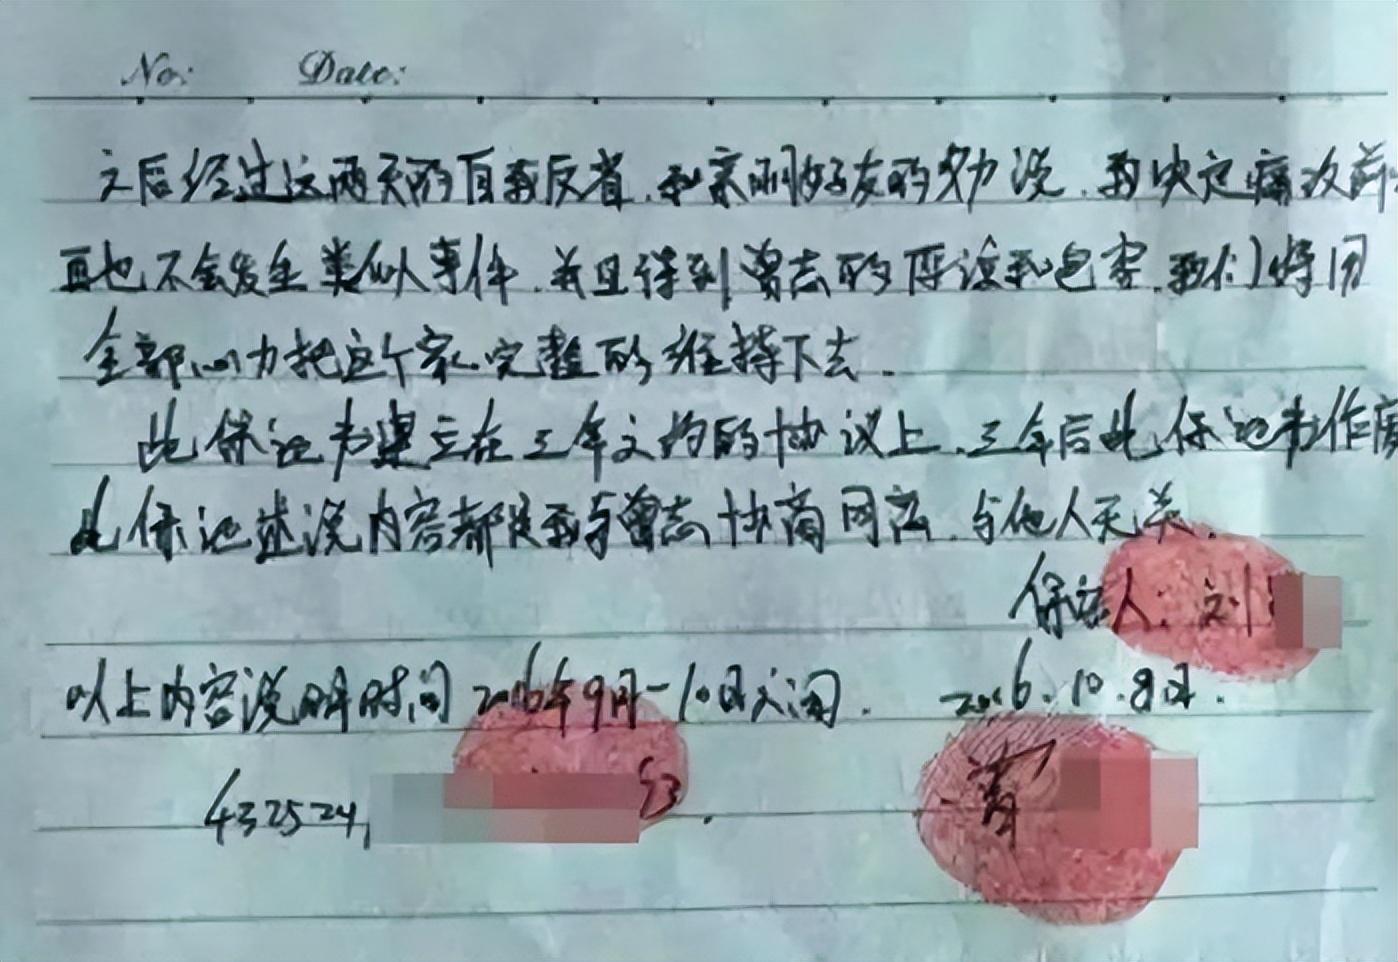 No:  Date:
之后经过这两天的自我反省，和亲朋好友的劝说，我决定痛改前
再也不会发生类似事件，并且得到曾志的原谅和包容，我们将用
全部心力把这个家完整的维持下去。
此保证书建立在三年之约的协议上，三年后此保证书作废
此保证述说内容都是我与曾志协商同意，与他人无关。
保证人：刘
以上内容说明时间2016年9月-10月之间.  2016.10.8日.
432524